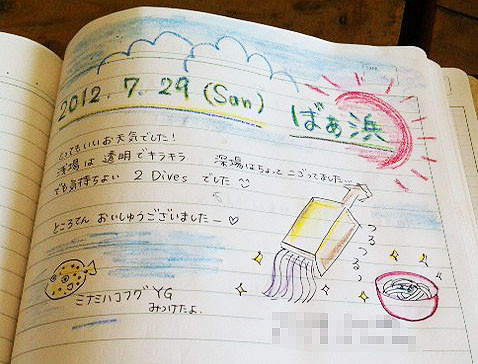 2012.7.29 (Sun) ばぁ浜
とってもいいお天気でした！
浅場は 透明でキラキラ 深場はちょっとニゴってました…
でも気持ちよい 2 Dives でした
ところてん おいしゅうございましたー♡
つるつるっ
ミナミハコフグ YG
みつけたよ.